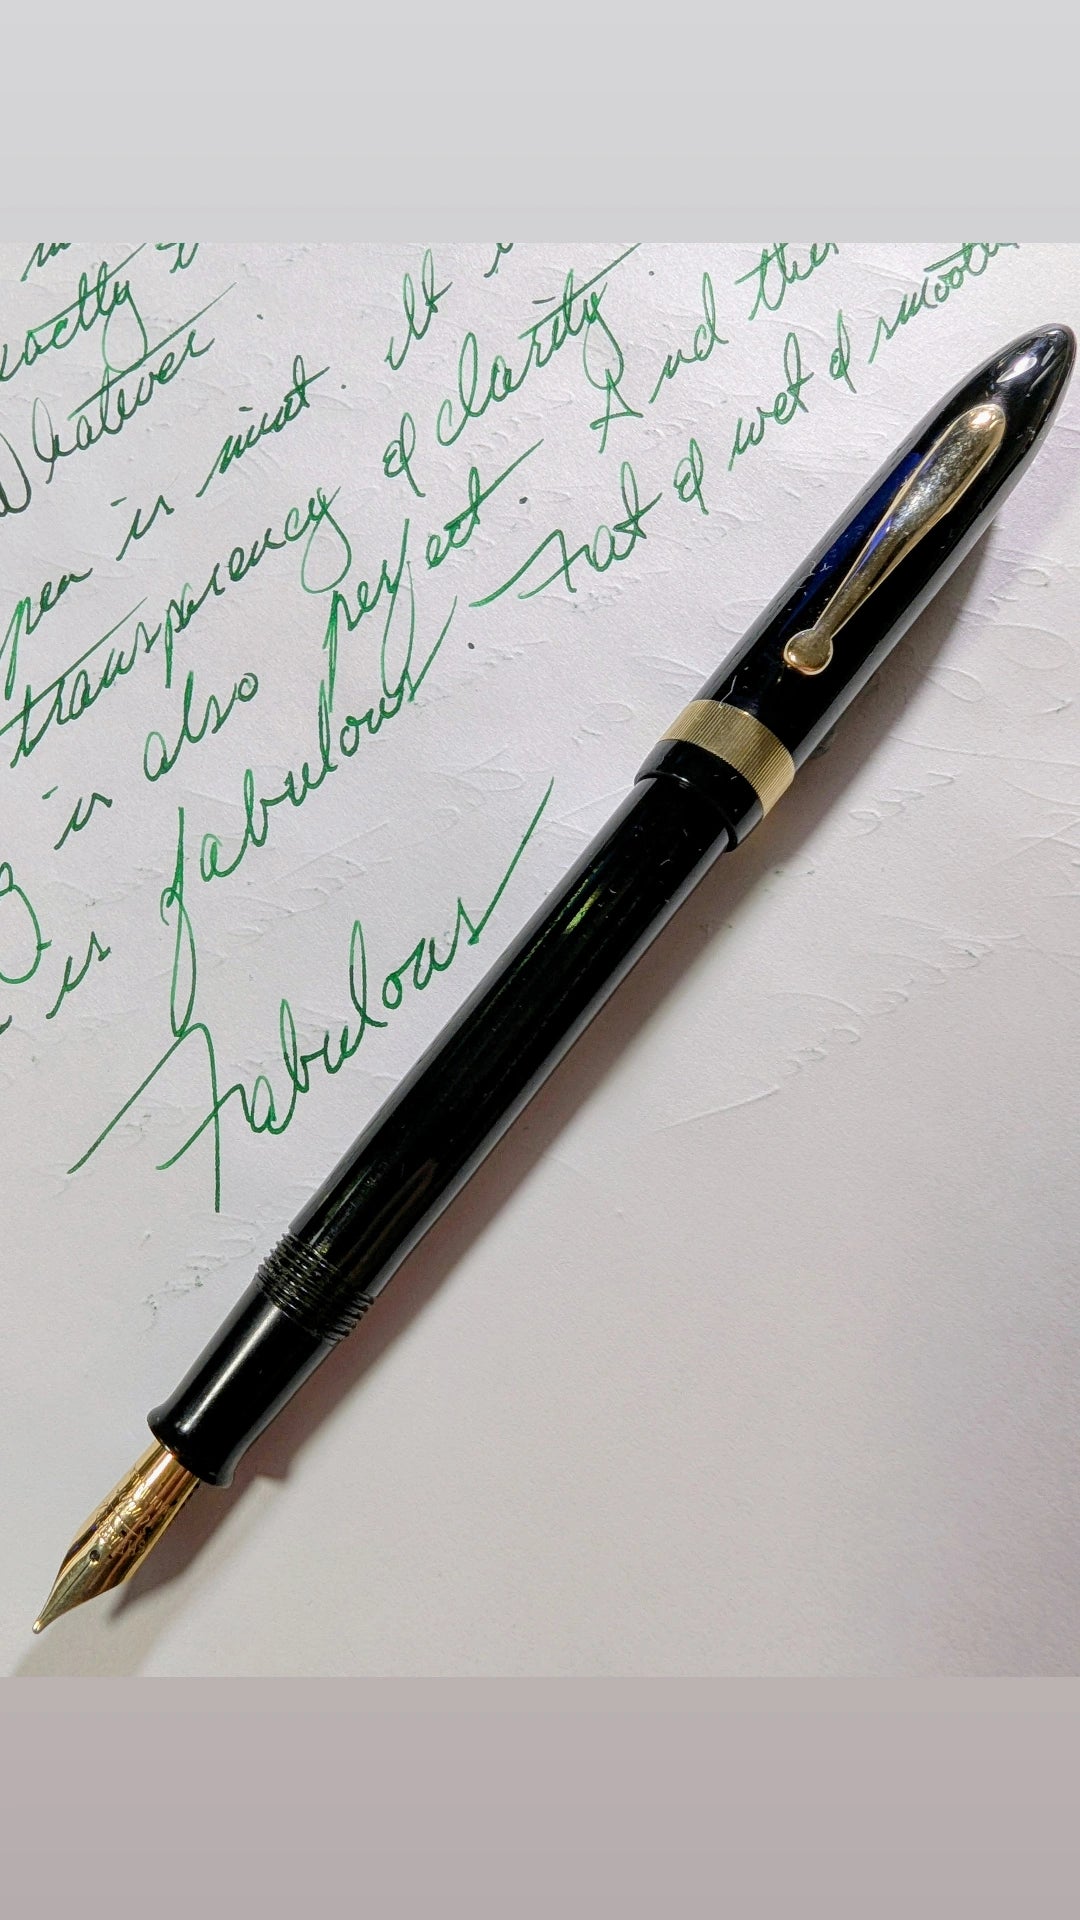 exactly
Whatever.
pen is mint. It
transparency & clarity.
is also perfect. And the
is fabulous. Fat & wet & smooth
Fabulous